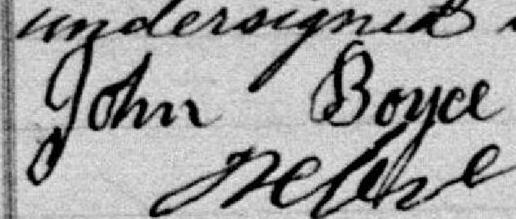 undersigned
John Boyce